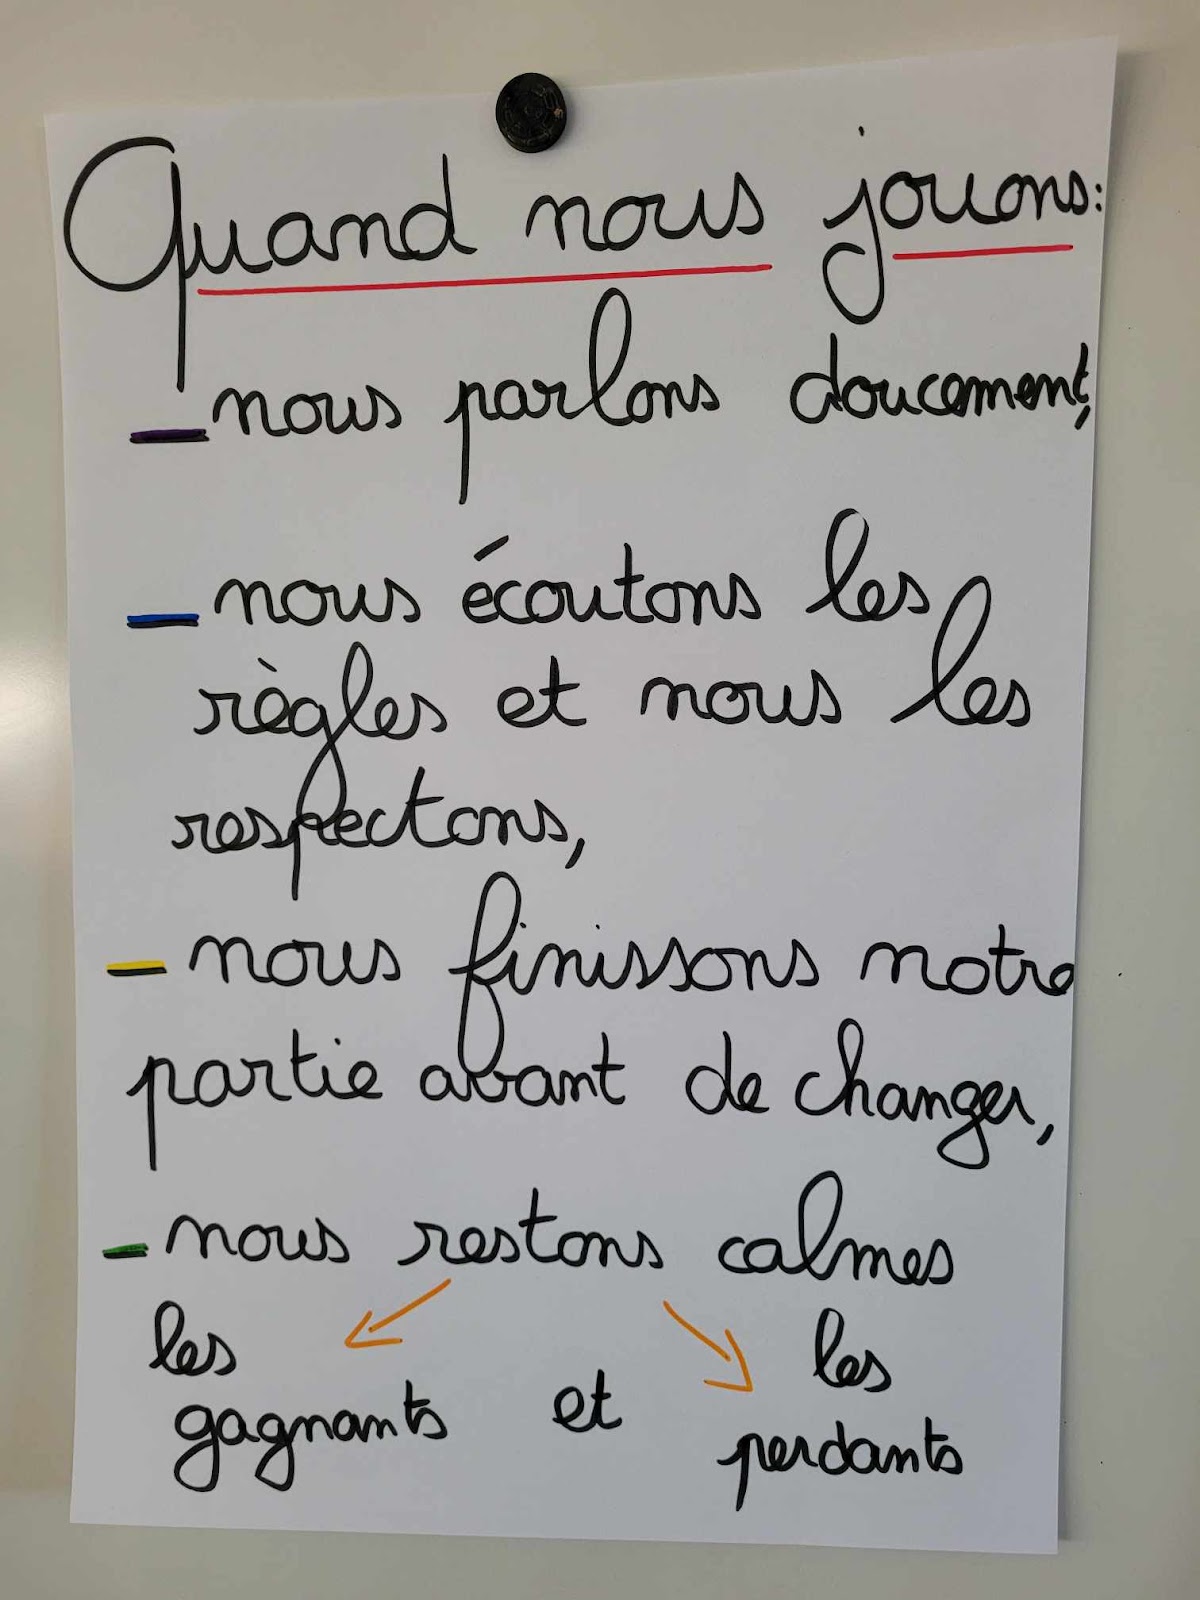 Quand nous jouons:
- nous parlons doucement,
- nous écoutons les
règles et nous les
respectons,
- nous finissons notre
partie avant de changer,
- nous restons calmes
les gagnants et les perdants